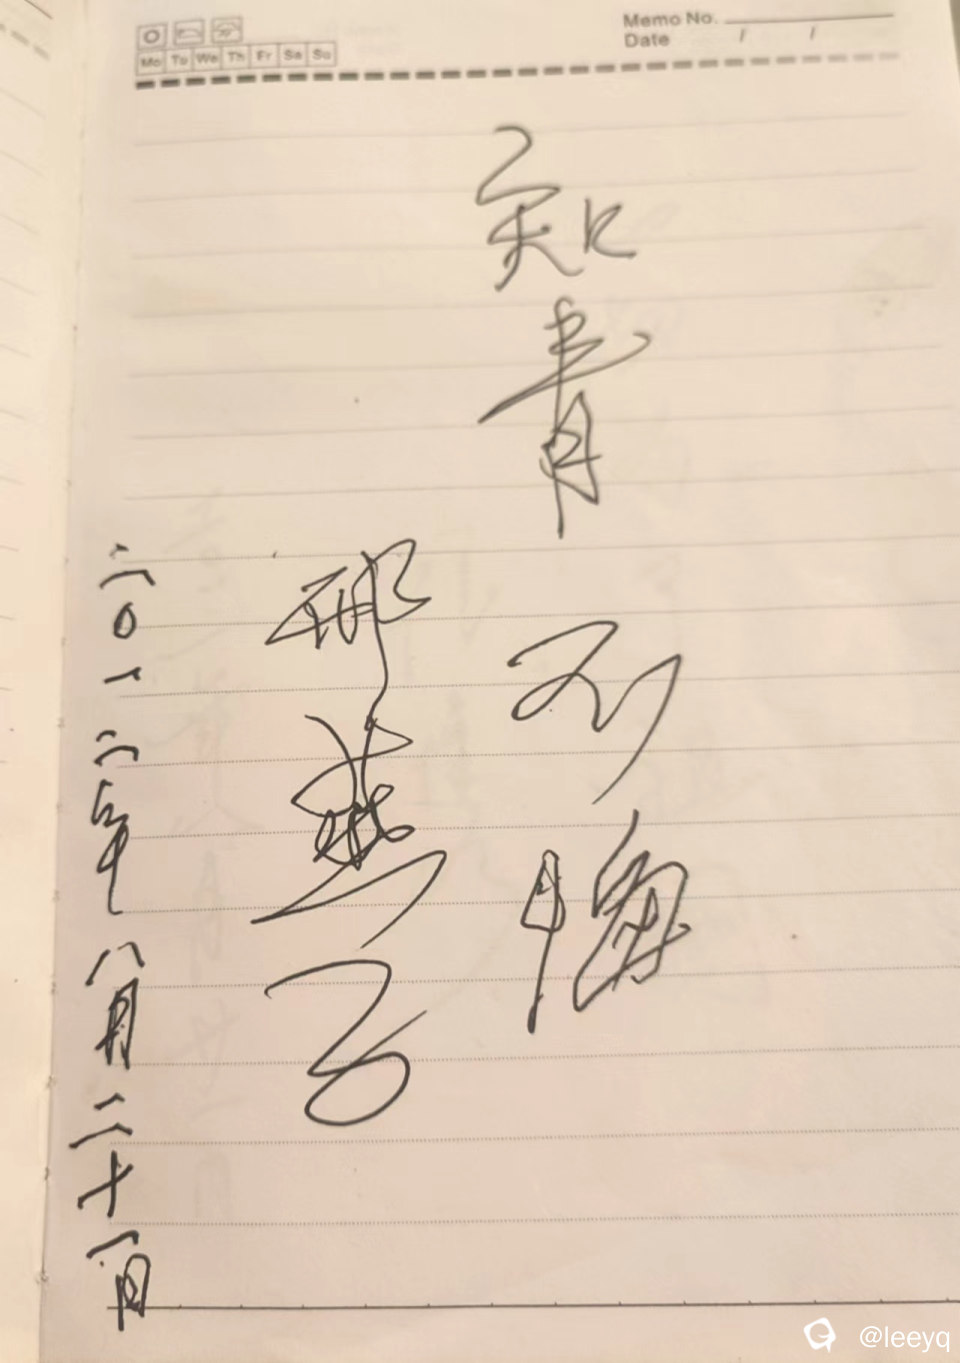 Mo Tu We Th Fr Sa Su
Memo No.
Date / /
知青
不悔
邢燕子
二〇一二年八月二十日
@leeyq